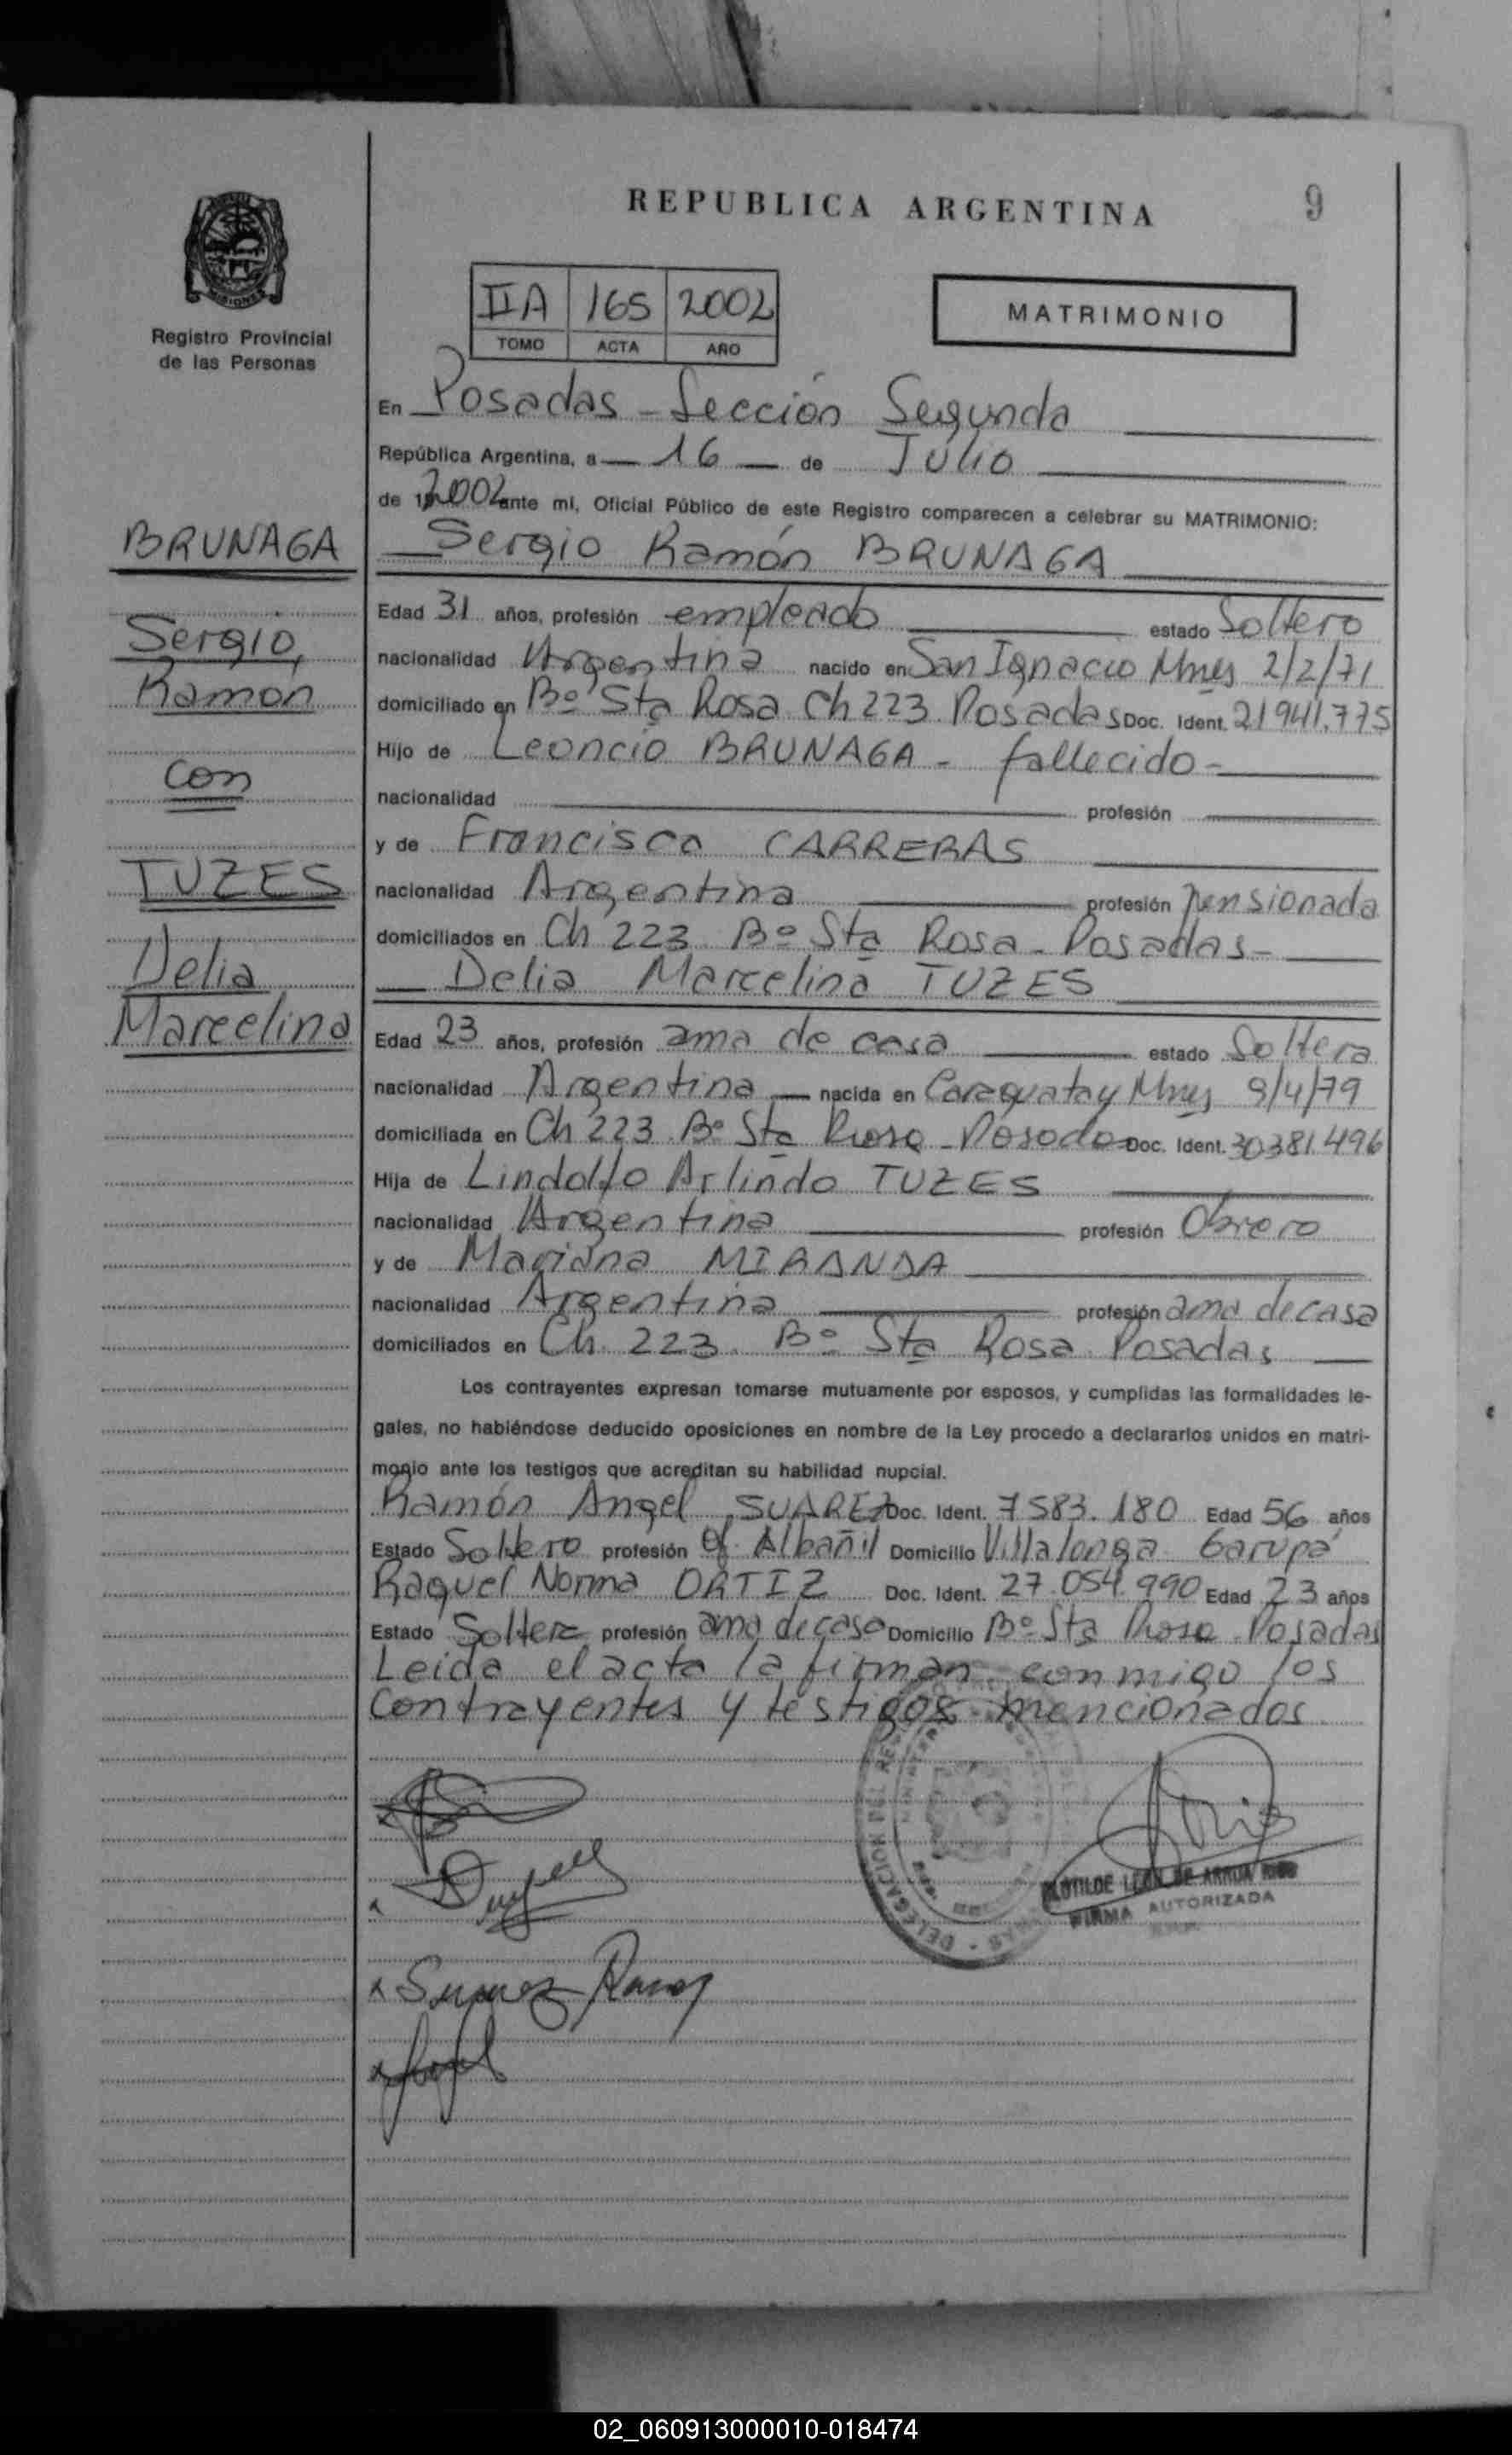 REPUBLICA ARGENTINA
9
MISIONES
Registro Provincial
de las Personas
IIA 165 2002
TOMO ACTA AÑO
MATRIMONIO
En Posadas - Sección Segunda
República Argentina, a 16 de Julio
de 2002 ante mí, Oficial Público de este Registro comparecen a celebrar su MATRIMONIO:
BRUNAGA
Sergio,
Ramon
con
TUZES
Delia
Marcelina
Sergio Ramón BRUNAGA
Edad 31 años, profesión empleado estado Soltero
nacionalidad Argentina nacido en San Ignacio Mnes 2/2/71
domiciliado en Bº Sta Rosa Ch 223 Posadas Doc. Ident. 21941.775
Hijo de Leoncio BRUNAGA - fallecido -
nacionalidad profesión
y de Francisca CARRERAS
nacionalidad Argentina profesión pensionada
domiciliados en Ch 223 Bº Sta Rosa - Posadas -
Delia Marcelina TUZES
Edad 23 años, profesión ama de casa estado Soltera
nacionalidad Argentina nacida en Caraguatay Mnes 9/4/79
domiciliada en Ch 223 Bº Sta Rosa - Posadas Doc. Ident. 30381.496
Hija de Lindolfo Arlindo TUZES
nacionalidad Argentina profesión Obrero
y de Mariana MIRANDA
nacionalidad Argentina profesión ama de casa
domiciliados en Ch. 223. Bº Sta Rosa Posadas
Los contrayentes expresan tomarse mutuamente por esposos, y cumplidas las formalidades le-
gales, no habiéndose deducido oposiciones en nombre de la Ley procedo a declararlos unidos en matri-
monio ante los testigos que acreditan su habilidad nupcial.
Ramón Angel SUAREZ Doc. Ident. 7583.180 Edad 56 años
Estado Soltero profesión Of. Albañil Domicilio Villalonga Garupá
Raquel Norma ORTIZ Doc. Ident. 27.054.990 Edad 23 años
Estado Soltera profesión ama de casa Domicilio Bº Sta Rosa Posadas
Leída el acta la firman conmigo los
Contrayentes y testigos mencionados
DELEGACION DEL
FIRMA AUTORIZADA
Suarez Ramon
02_060913000010-018474